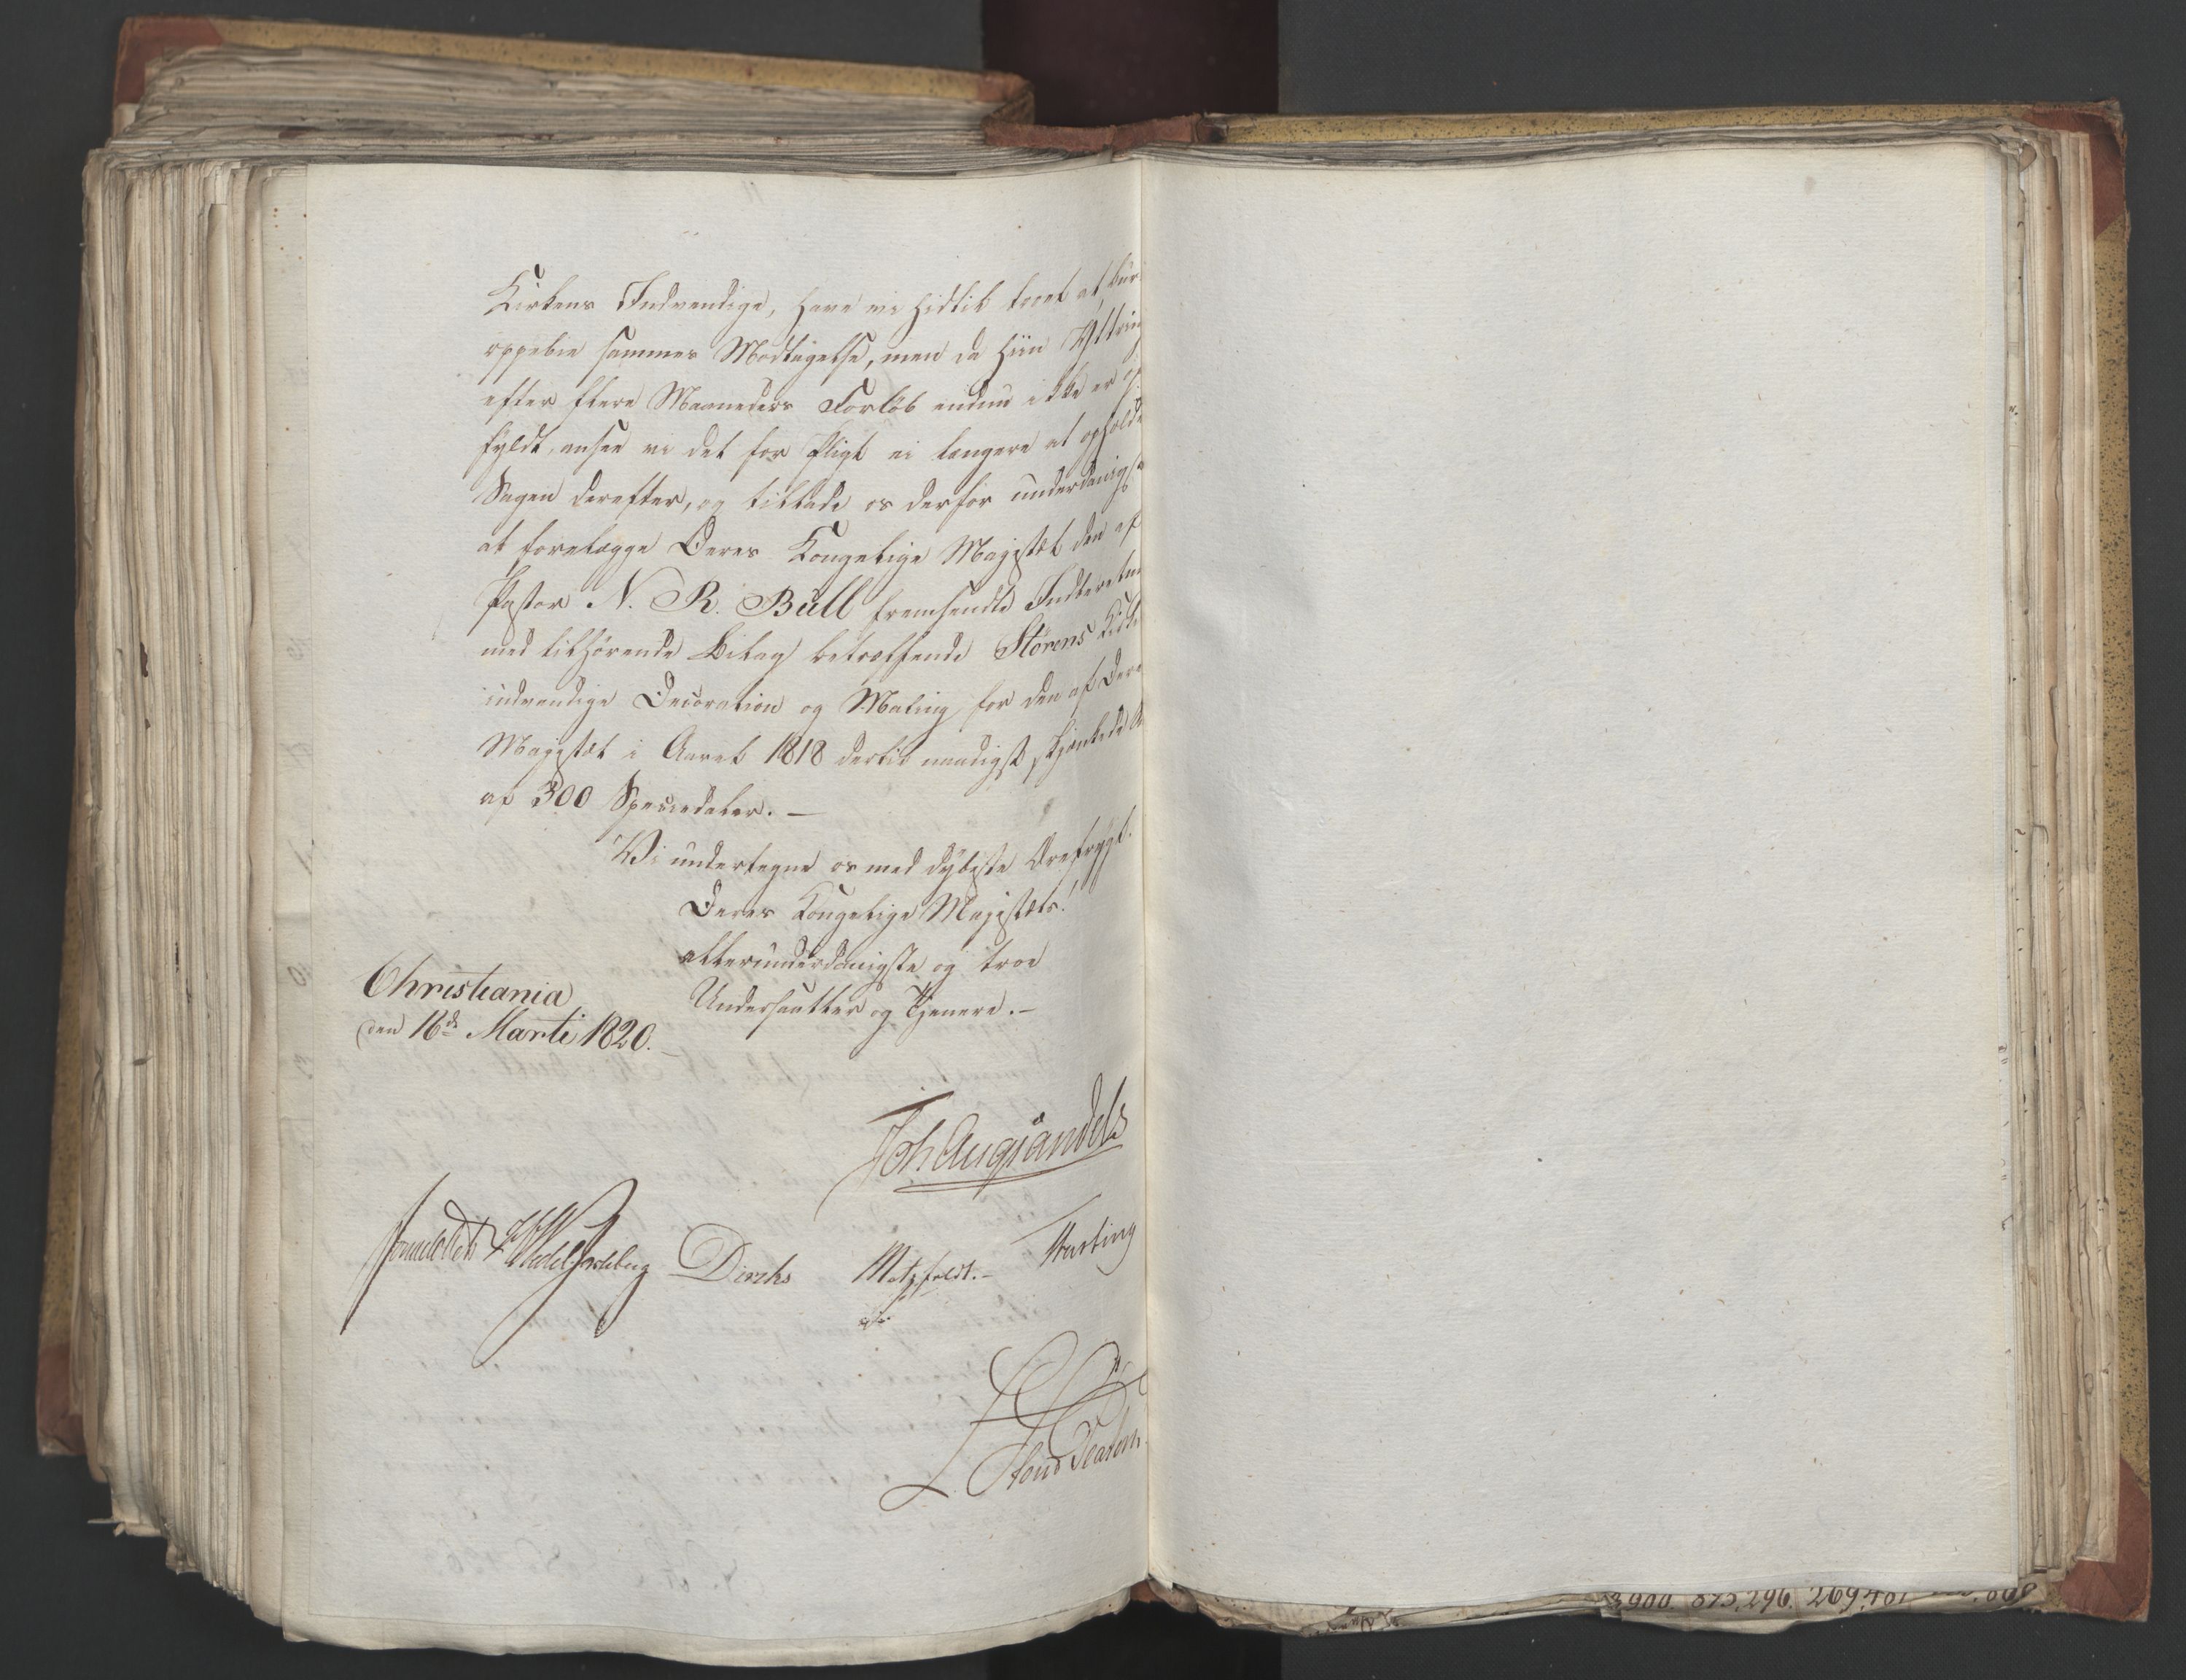 Kirkens Indvendige, have vi hidtil troet at bur
oppebie sammes Modtagelse, men da hiin Yttrin
efter flere Maaneders Forløb endnu ikke er op
fyldt, ansee vi det for Pligt ei længere at opholde
Sagen derefter, og tillade os derfor underdanigst
at forelægge Deres Kongelige Majestæt den af
Pastor N. R. Bull fremsendte Indberetn
med tilhørende Bilag betræffende Størens Kirke
indvendige Decoration og Maling for den af Deres
Majestæt i Aaret 1818 dertil naadigst skjænkede
af 300 Speciedaler. —
Vi undertegne os med dybeste Ærefrygt.
Deres Kongelige Majestæts!
allerunderdanigste og troe
Undersaatter og Tjenere. —
Christiania
den 16de Marti 1820. —
Joh Aug Sandels
Sommerhielm HWedel Jarlsberg Diriks Motzfeldt. — Krefting
L. Stoud Platou
3900 875,296. 269,401